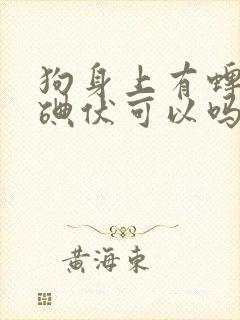 狗身上有蜱
碘伏可以吗
黄海东